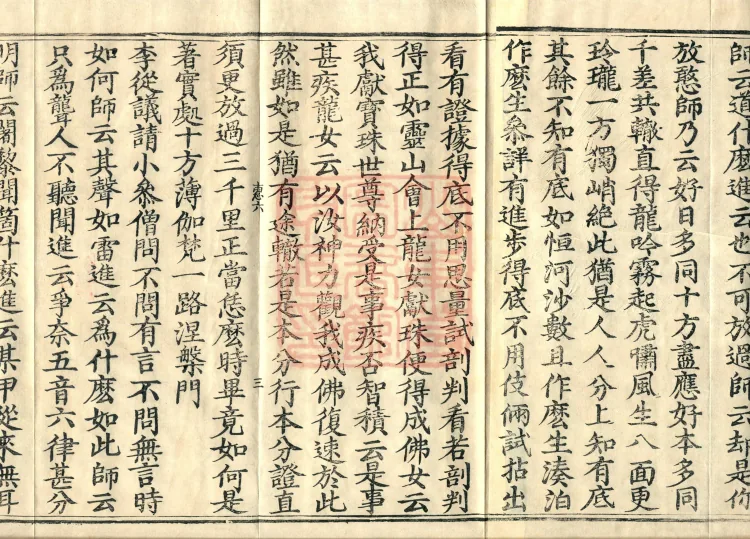 師云道什麽進云也不可放過師云却是你
放憨師乃云好日多同十方盡應好本多同
千差共轍直得龍吟霧起虎嘯風生八面更
玲瓏一方獨峭絶此猶是人人分上知有底
其餘不知有底如恒河沙數且作麽生湊泊
作麽生叅詳有進步得底不用伎倆試拈出
看有證據得底不用思量試剖判看若剖判
得正如靈山會上龍女獻珠便得成佛女云
我獻寶珠世尊納受是事疾否智積云是事
甚疾龍女云以汝神力觀我成佛復速於此
然雖如是猶有途轍若是本分行本分證直
六 三
須更放過三千里正當恁麽時畢竟如何是
著實處十方薄伽梵一路涅槃門
李從議請小叅僧問不問有言不問無言時
如何師云其聲如雷進云爲什麽如此師云
只爲聾人不聽聞進云爭奈五音六律甚分
明師云闍黎聞箇什麽進云某甲從來無耳